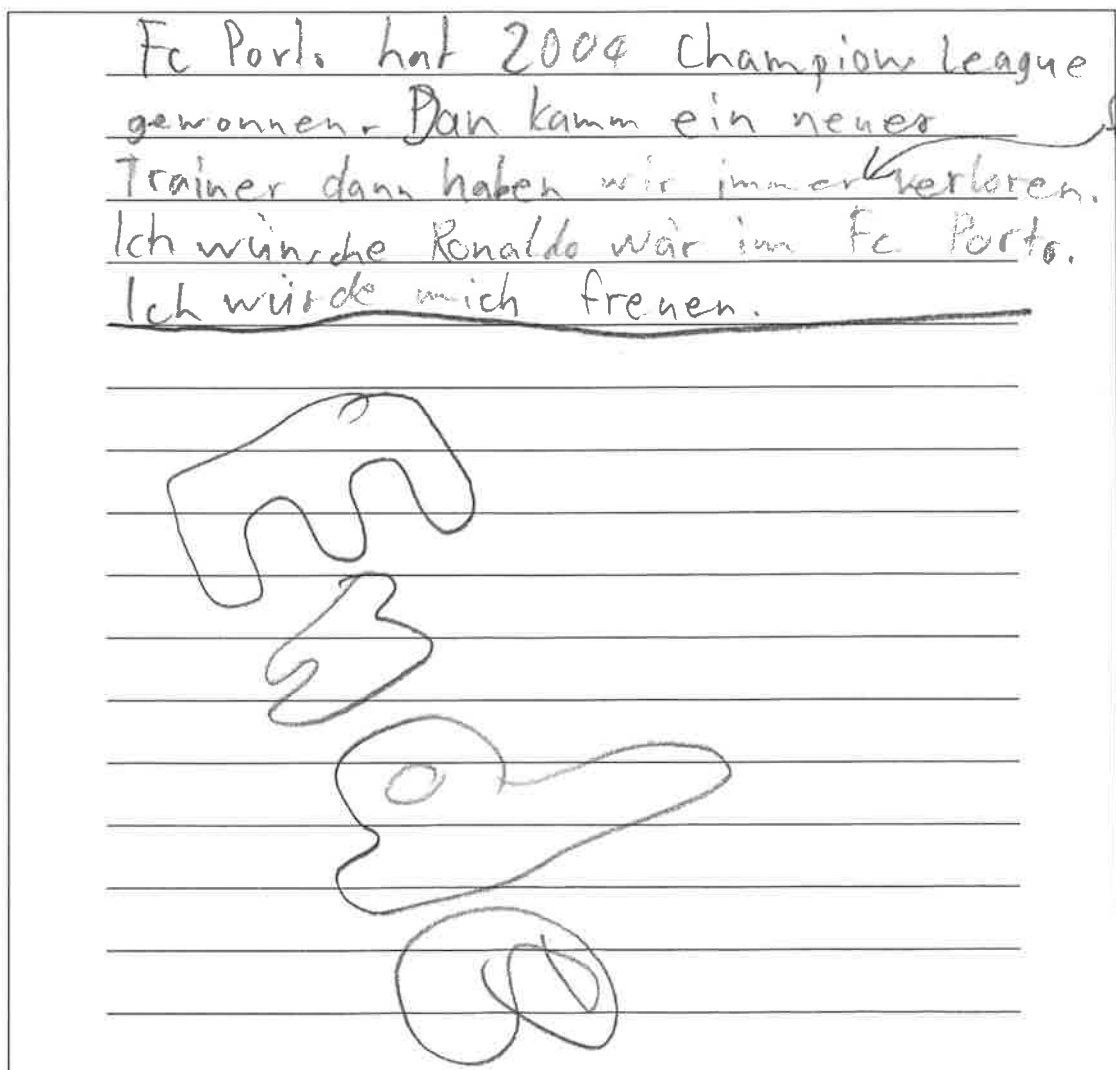 Fc Porto hat 2004 Champions League
gewonnen. Dan kamm ein neuer
Trainer dann haben wir immer verloren.
Ich wünsche Ronaldo wär im Fc Porto.
Ich würde mich freuen.